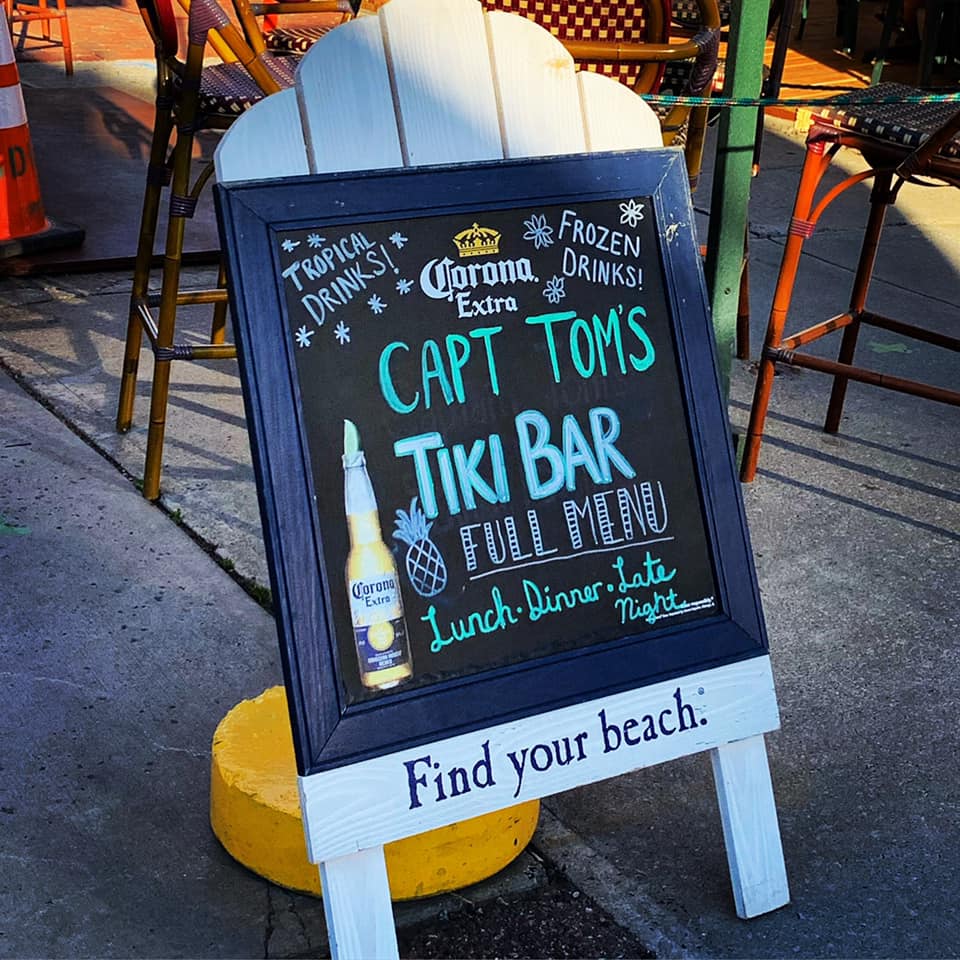 TROPICAL
DRINKS!
Corona
Extra
FROZEN
DRINKS!
CAPT TOM'S
TIKI BAR
FULL MENU
Lunch · Dinner · Late
Night
Corona
Extra
Find your beach.
D